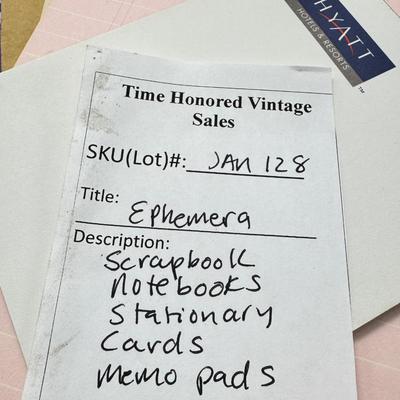 HYATT
HOTELS & RESORTS
TM
Time Honored Vintage
Sales
SKU(Lot)#: JAN 128
Title:
Ephemera
Description:
Scrapbook
Notebooks
Stationary
Cards
Memo pads